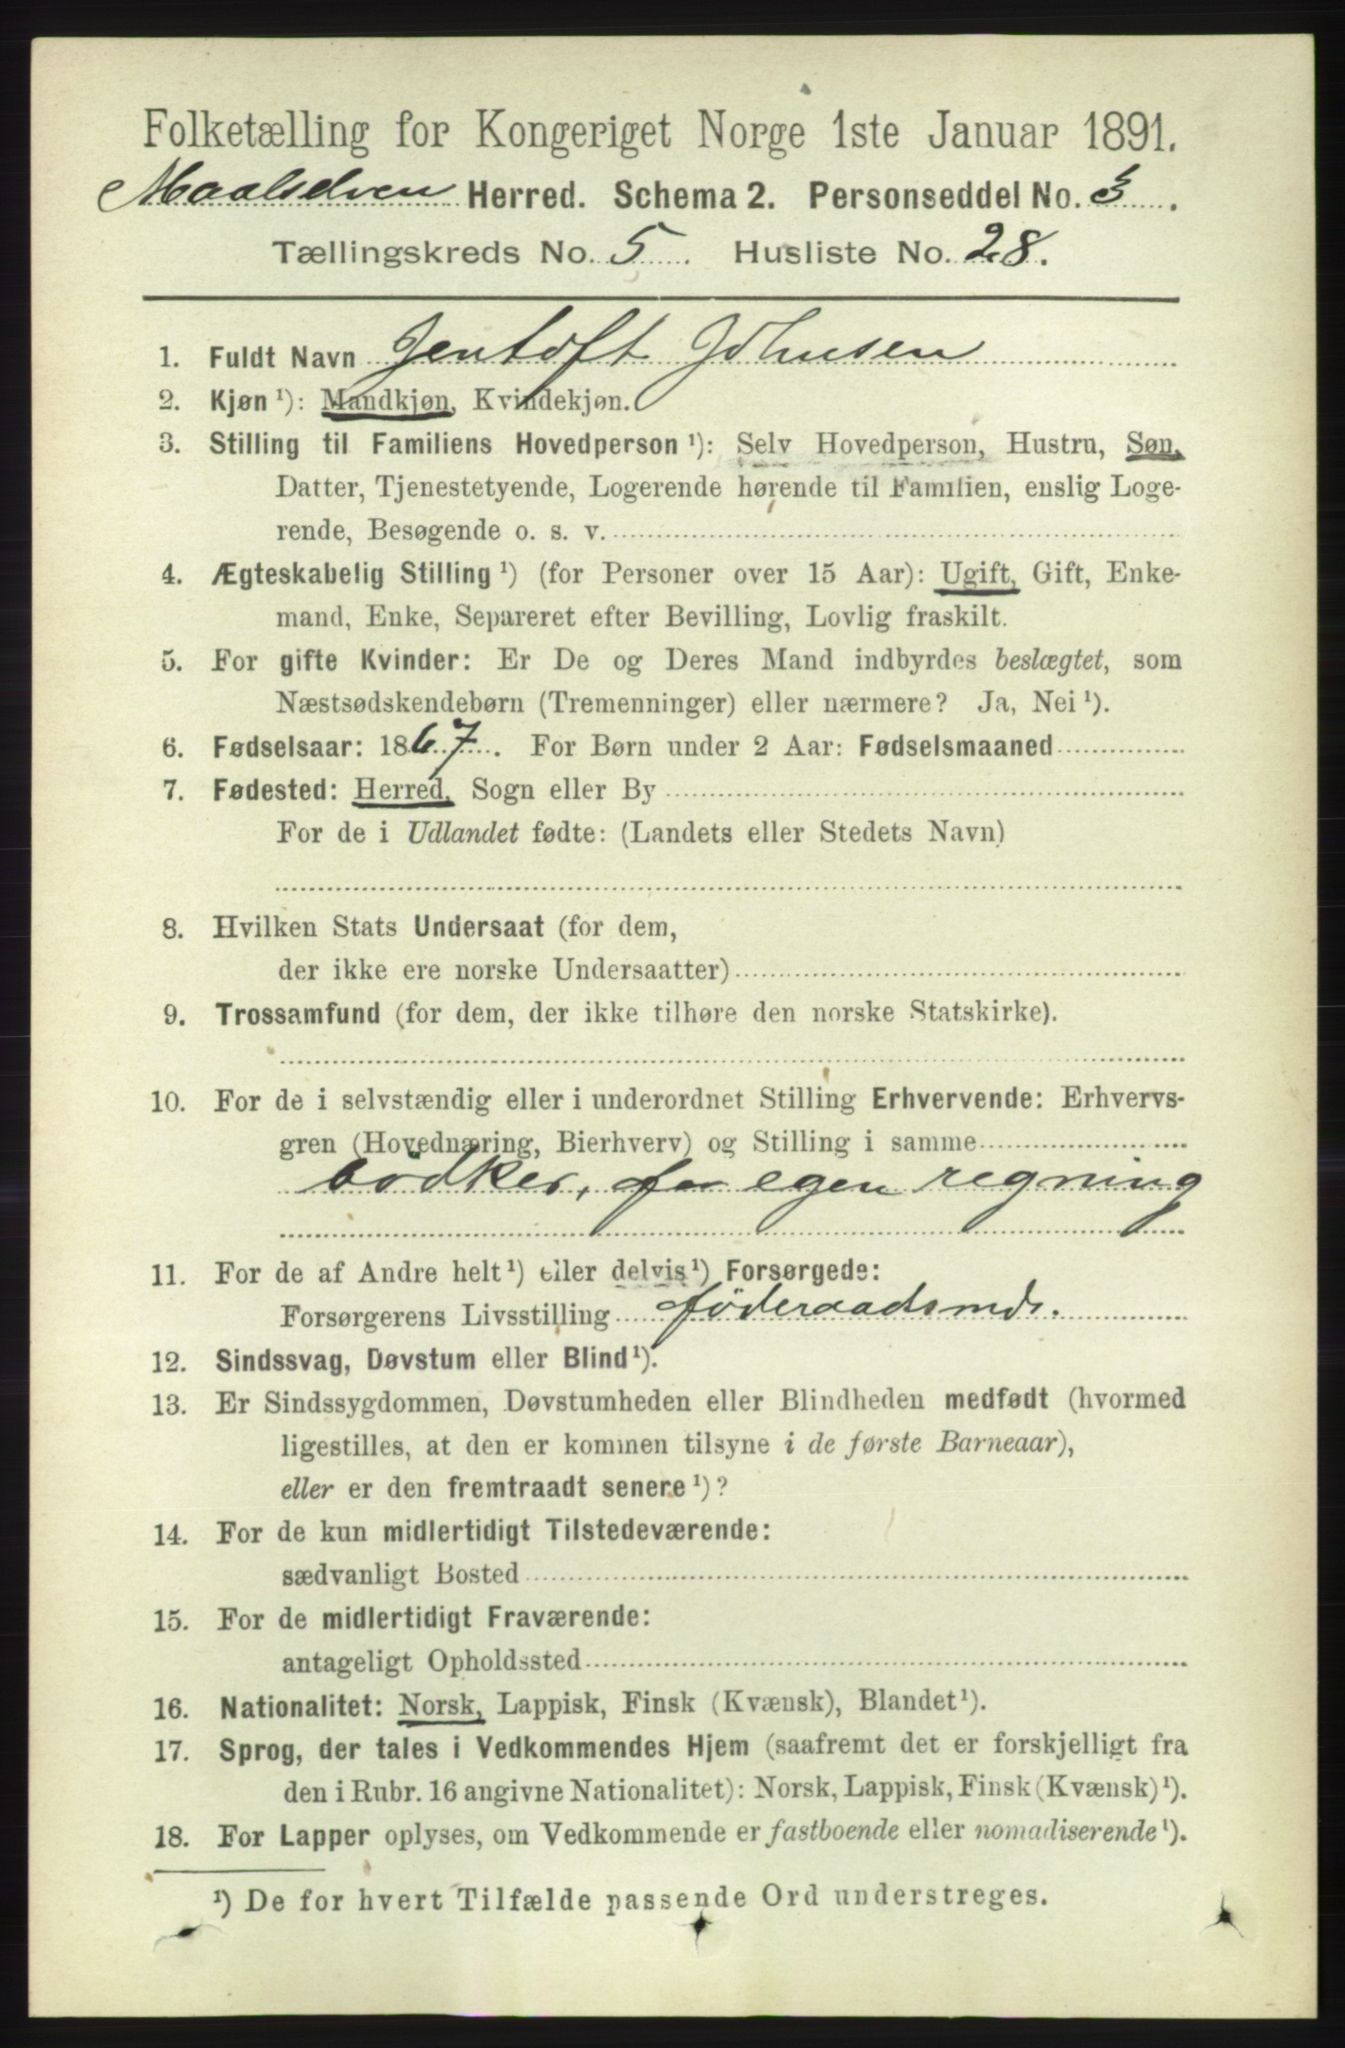 Folketælling for Kongeriget Norge 1ste Januar 1891.
Maalselven Herred. Schema 2. Personseddel No. 3.
Tællingskreds No. 5. Husliste No. 28.
1. Fuldt Navn Jentoft Johnsen
2. Kjøn ¹): Mandkjøn, Kvindekjøn.
3. Stilling til Familiens Hovedperson ¹): Selv Hovedperson, Hustru, Søn,
Datter, Tjenestetyende, Logerende hørende til Familien, enslig Loge-
rende, Besøgende o. s. v.
4. Ægteskabelig Stilling ¹) (for Personer over 15 Aar): Ugift, Gift, Enke-
mand, Enke, Separeret efter Bevilling, Lovlig fraskilt.
5. For gifte Kvinder: Er De og Deres Mand indbyrdes beslægtet, som
Næstsødskendebørn (Tremenninger) eller nærmere? Ja, Nei ¹).
6. Fødselsaar: 1867. For Børn under 2 Aar: Fødselsmaaned
7. Fødested: Herred, Sogn eller By
For de i Udlandet fødte: (Landets eller Stedets Navn)
8. Hvilken Stats Undersaat (for dem,
der ikke ere norske Undersaatter)
9. Trossamfund (for dem, der ikke tilhøre den norske Statskirke).
10. For de i selvstændig eller i underordnet Stilling Erhvervende: Erhvervs-
gren (Hovednæring, Bierhverv) og Stilling i samme
bødker, for egen regning
11. For de af Andre helt ¹) eller delvis ¹) Forsørgede:
Forsørgerens Livsstilling føderaadsmd.
12. Sindssvag, Døvstum eller Blind ¹).
13. Er Sindssygdommen, Døvstumheden eller Blindheden medfødt (hvormed
ligestilles, at den er kommen tilsyne i de første Barneaar),
eller er den fremtraadt senere ¹)?
14. For de kun midlertidigt Tilstedeværende:
sædvanligt Bosted
15. For de midlertidigt Fraværende:
antageligt Opholdssted
16. Nationalitet: Norsk, Lappisk, Finsk (Kvænsk), Blandet ¹).
17. Sprog, der tales i Vedkommendes Hjem (saafremt det er forskjelligt fra
den i Rubr. 16 angivne Nationalitet): Norsk, Lappisk, Finsk (Kvænsk) ¹).
18. For Lapper oplyses, om Vedkommende er fastboende eller nomadiserende ¹).
¹) De for hvert Tilfælde passende Ord understreges.